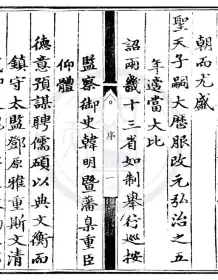 朝而尤盛
聖天子嗣大曆服改元弘治之五
年適當大比
詔兩畿十三省如制舉行巡按
序
一
監察御史韓明暨藩臬重臣
仰體
德意預謀聘儒碩以典文衡而
鎮守太監鄧原雅重斯文清